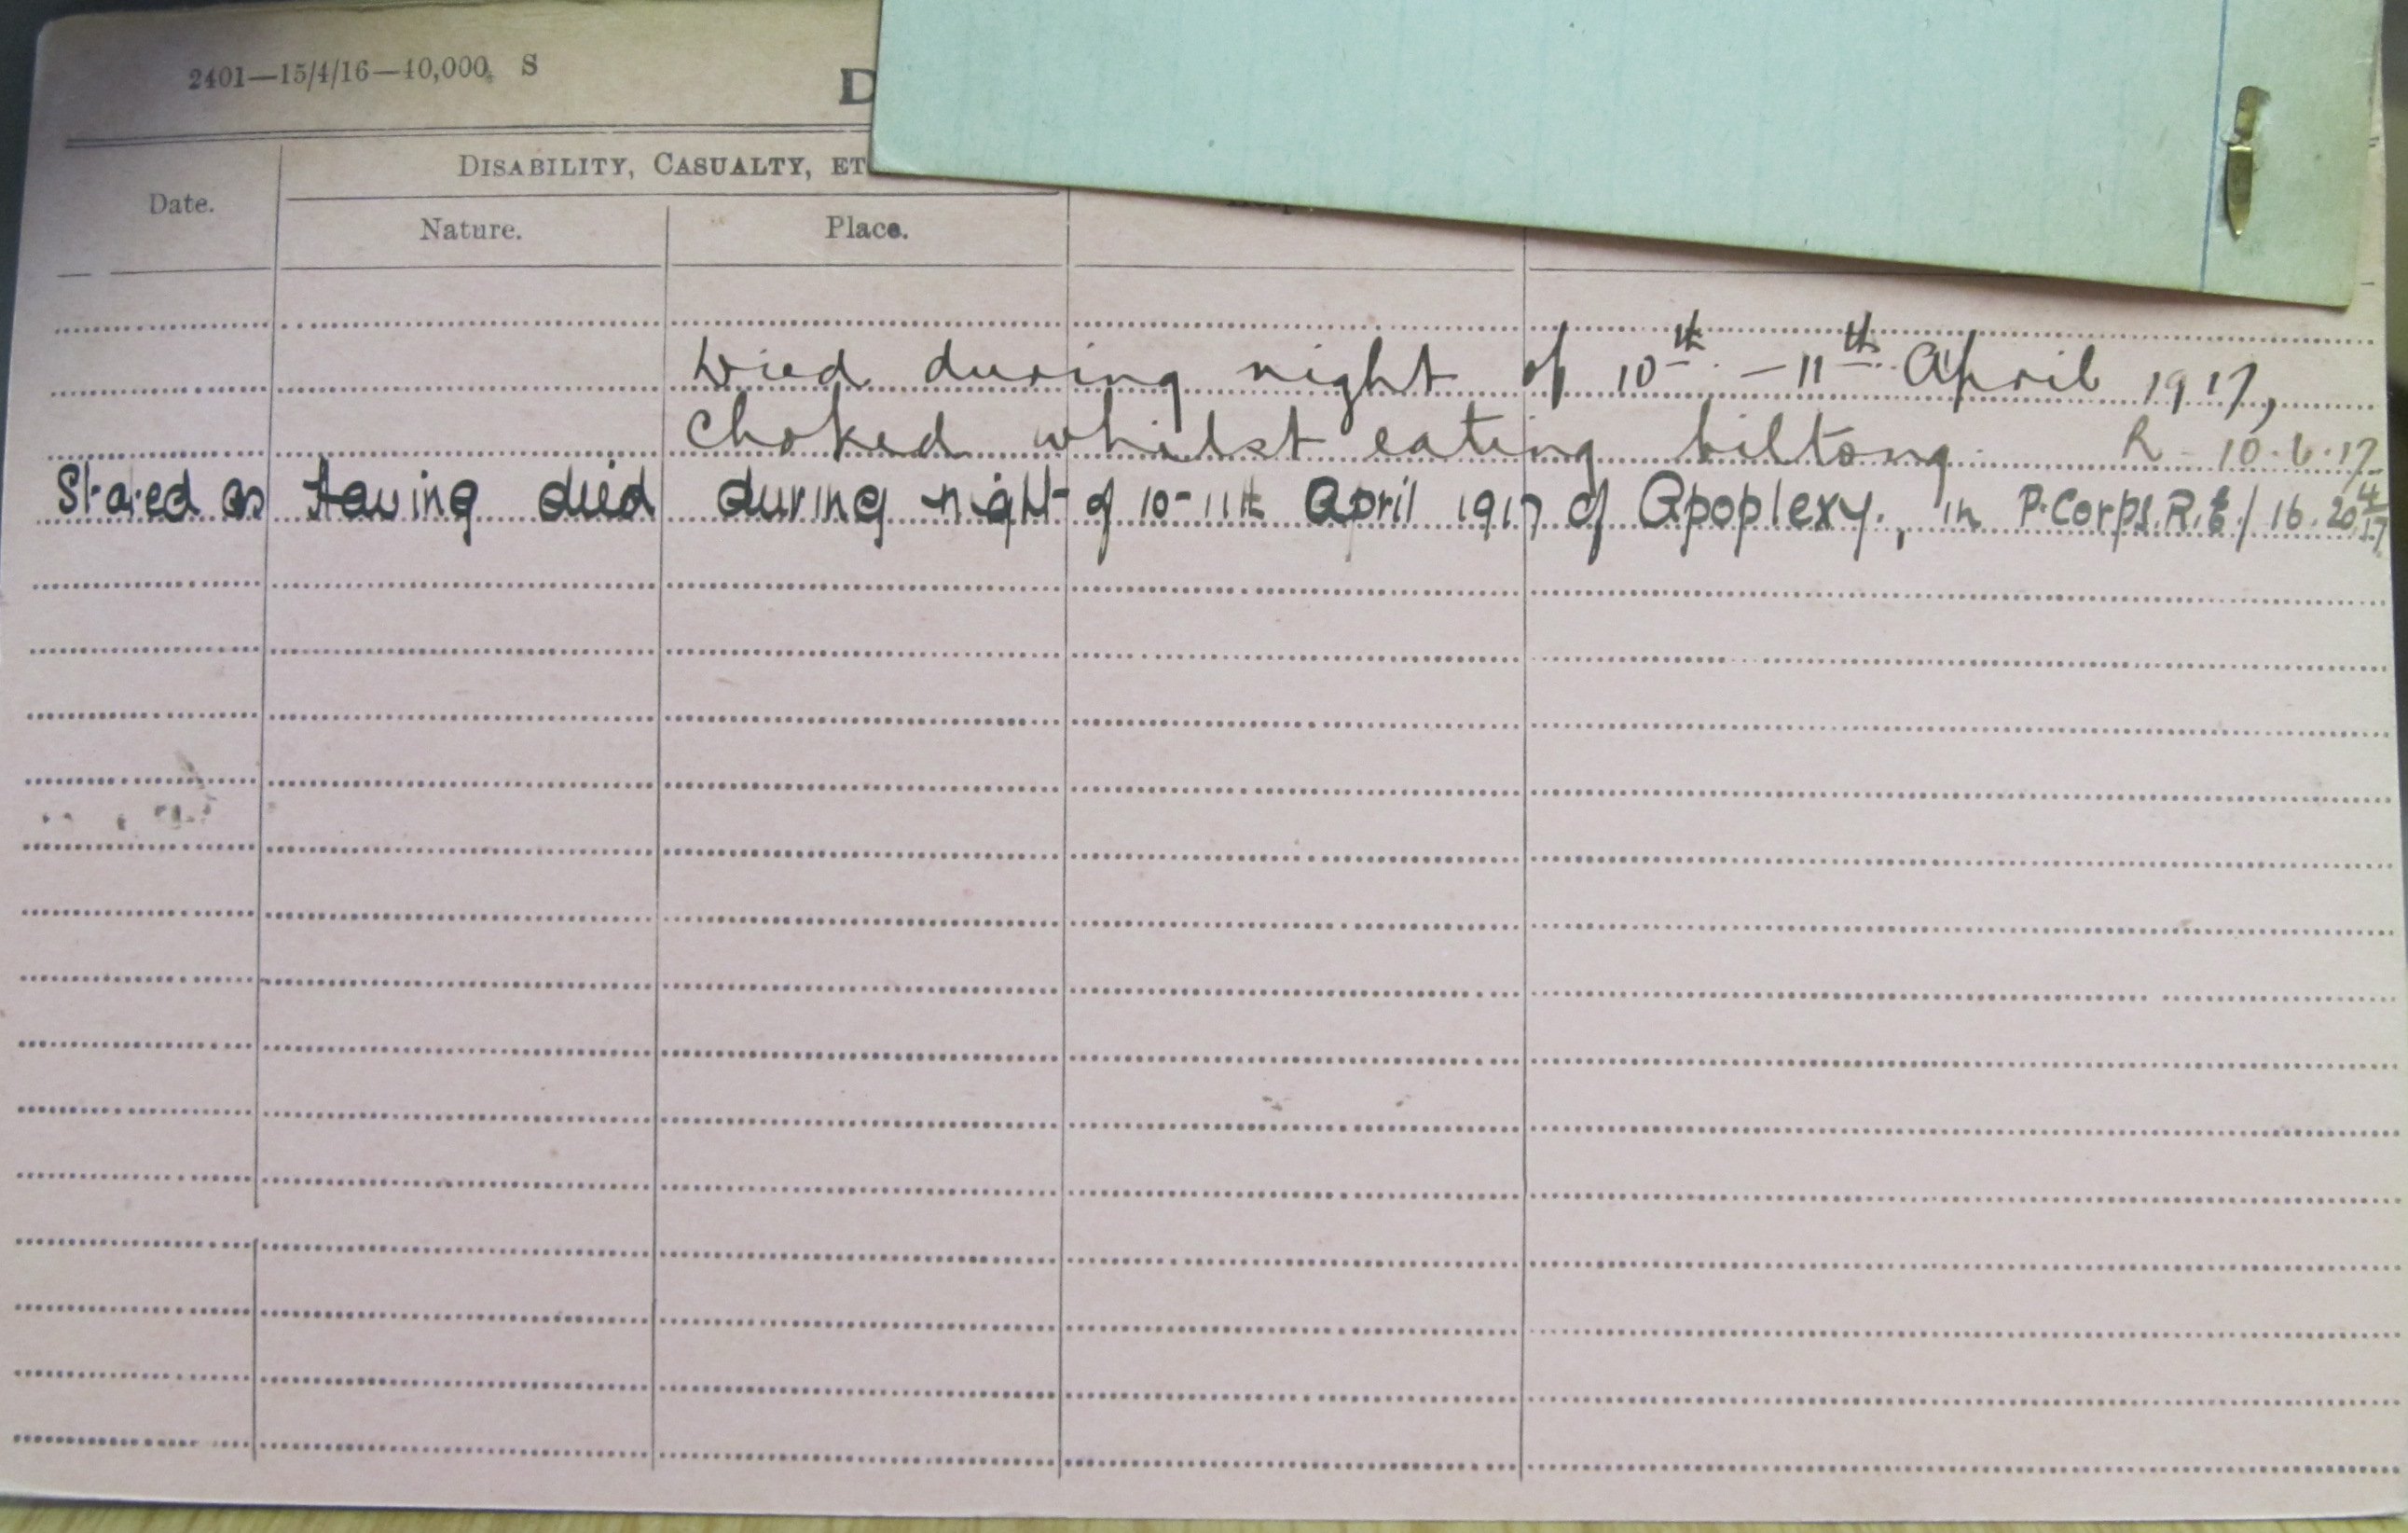 2401—15/4/16—40,000. S
D
DISABILITY, CASUALTY, ET
Date.
Nature.
Place.
Died during night of 10th - 11th April 1917,
Choked whilst eating biltong. R 10.6.17
Stated as having died during night of 10-11th April 1917 of Apoplexy., in P. Corps. R. / 16. 20/4/17